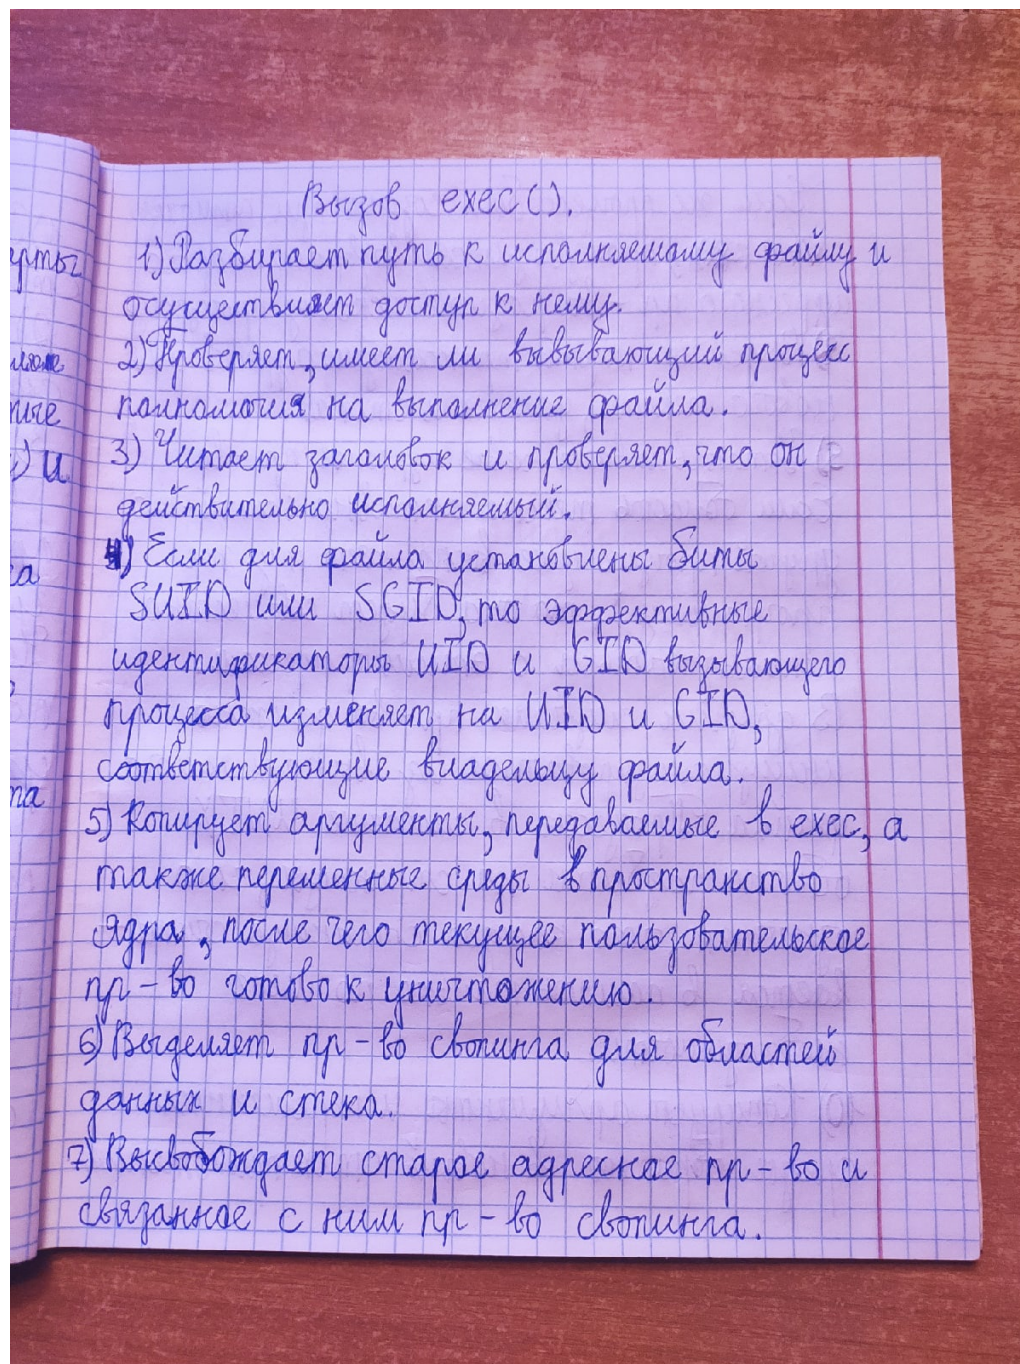 Вызов exec().
1) Разбирает путь к исполняемому файлу и
осуществляет доступ к нему.
2) Проверяет, имеет ли вывывающий процесс
полномочия на выполнение файла.
3) Читает заголовок и проверяет, что он
действительно исполняемый.
4) Если для файла установлены биты
SUID или SGID, то эффективные
идентификаторы UID и GID вызывающего
процесса изменяет на UID и GID,
соответствующие владельцу файла.
5) Копирует аргументы, передаваемые в exec, а
также переменные среды в пространство
ядра, после чего текущее пользовательское
пр-во готово к уничтожению.
6) Выделяет пр-во свопинга для областей
данных и стека.
7) Высвобождает старое адресное пр-во и
связанное с ним пр-во свопинга.